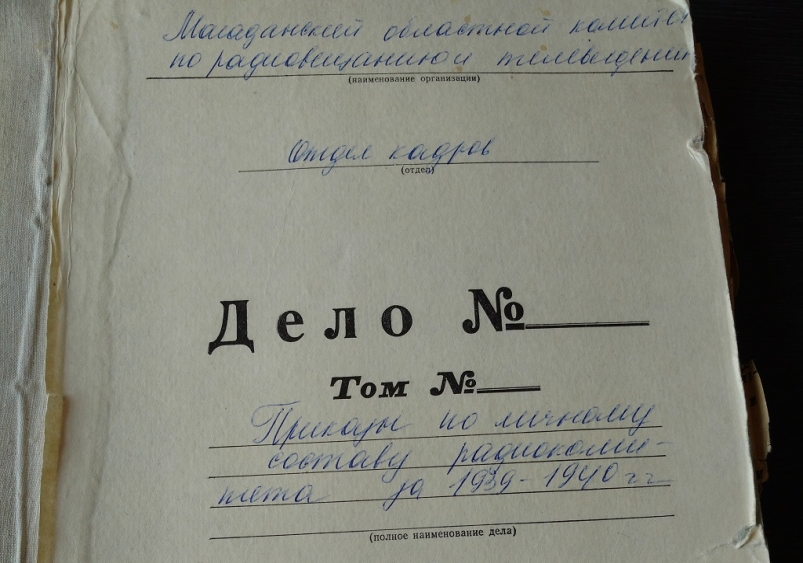 Магаданский областной комитет
по радиовещанию и телевидению
(наименование организации)
Отдел кадров
(отдел)
Дело №
Том №
Приказы по личному
составу радиокоми-
тета за 1939-1940 гг
(полное наименование дела)